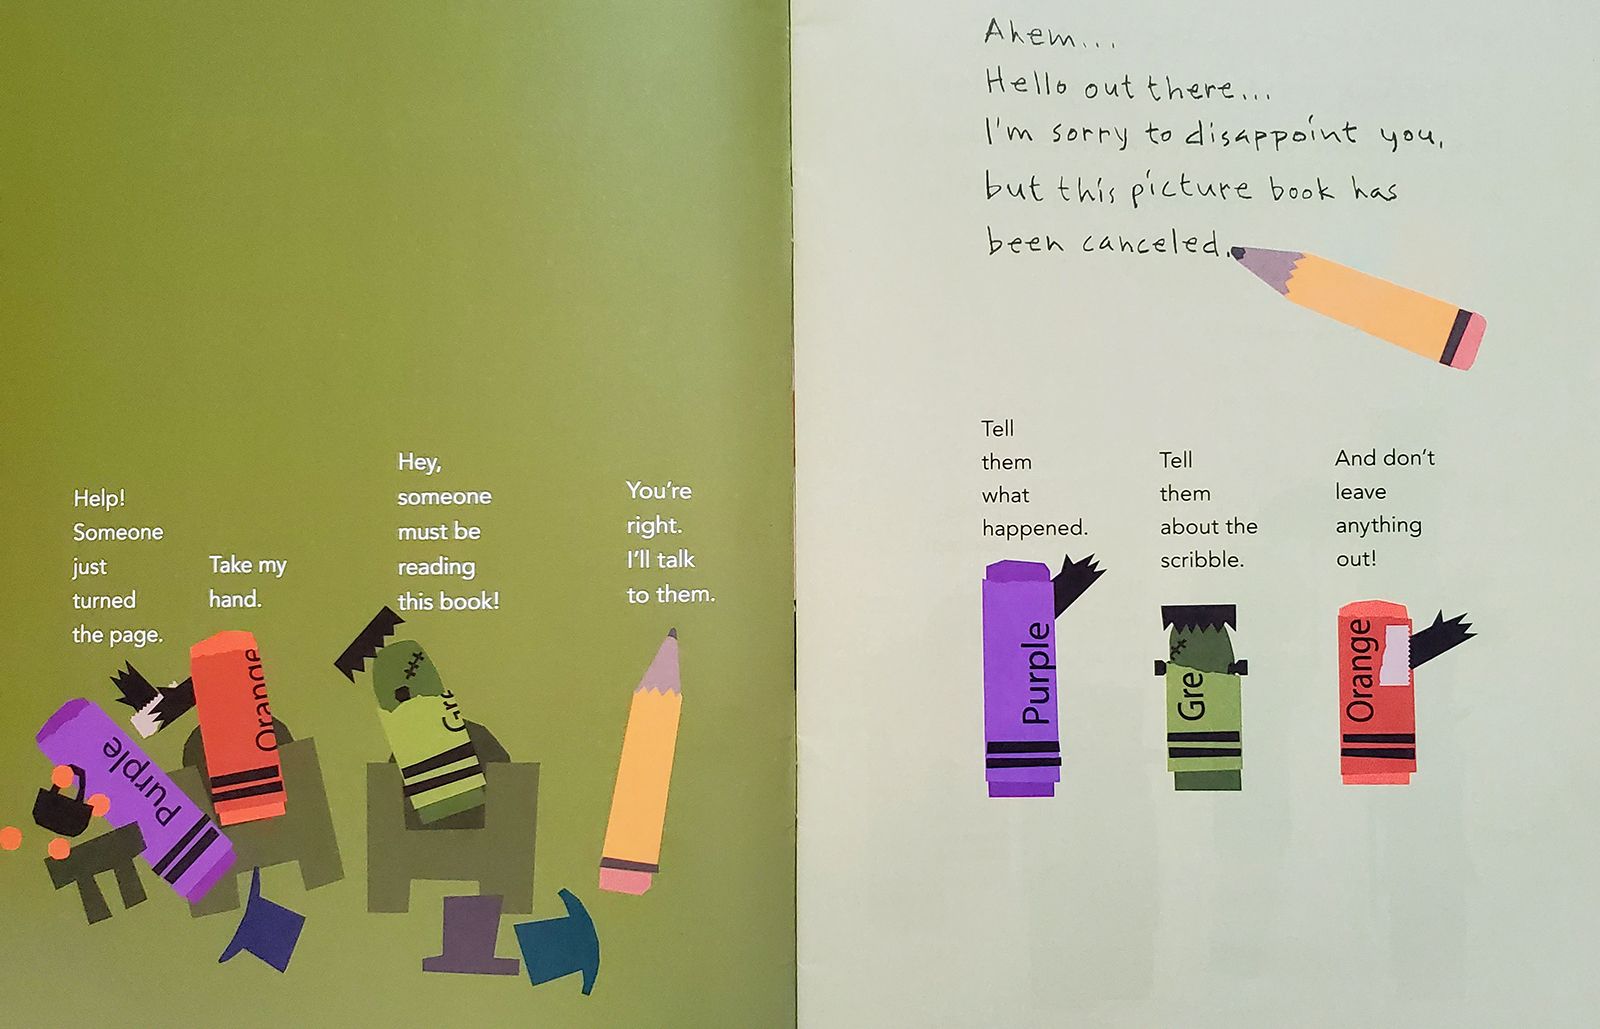 Help!
Someone
just
turned
the page.
Take my
hand.
Hey,
someone
must be
reading
this book!
You're
right.
I'll talk
to them.
Purple
Orange
Gr
Ahem...
Hello out there...
I'm sorry to disappoint you,
but this picture book has
been canceled.
Tell
them
what
happened.
Tell
them
about the
scribble.
And don't
leave
anything
out!
Purple
Gre
Orange